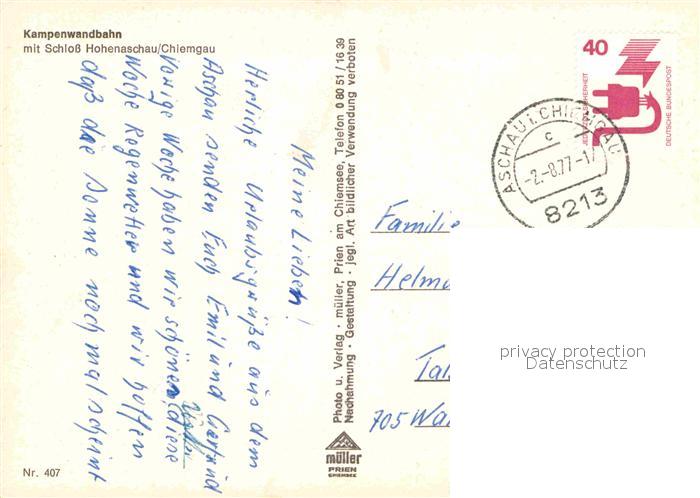 Kampenwandbahn
mit Schloß Hohenaschau/Chiemgau
Meine Lieben!
Herzliche Urlaubsgrüße aus dem
Aschau senden Euch Emil und Gertrud
Vorige Woche haben wir schönes, diese
Woche Regenwetter und wir hoffen
daß die Sonne noch mal scheint
Nr. 407
Photo u. Verlag müller, Prien am Chiemsee, Telefon 0 80 51 / 16 39
Nachahmung · Gestaltung · jegl. Art bildlicher Verwendung verboten
müller
PRIEN
CHIEMSEE
40
JEDERZEIT SICHERHEIT
DEUTSCHE BUNDESPOST
ASCHAU I. CHIEMGAU
c
-2.-8.77.-1
8213
Familie
Helm
Tal
705 Wa
privacy protection
Datenschutz